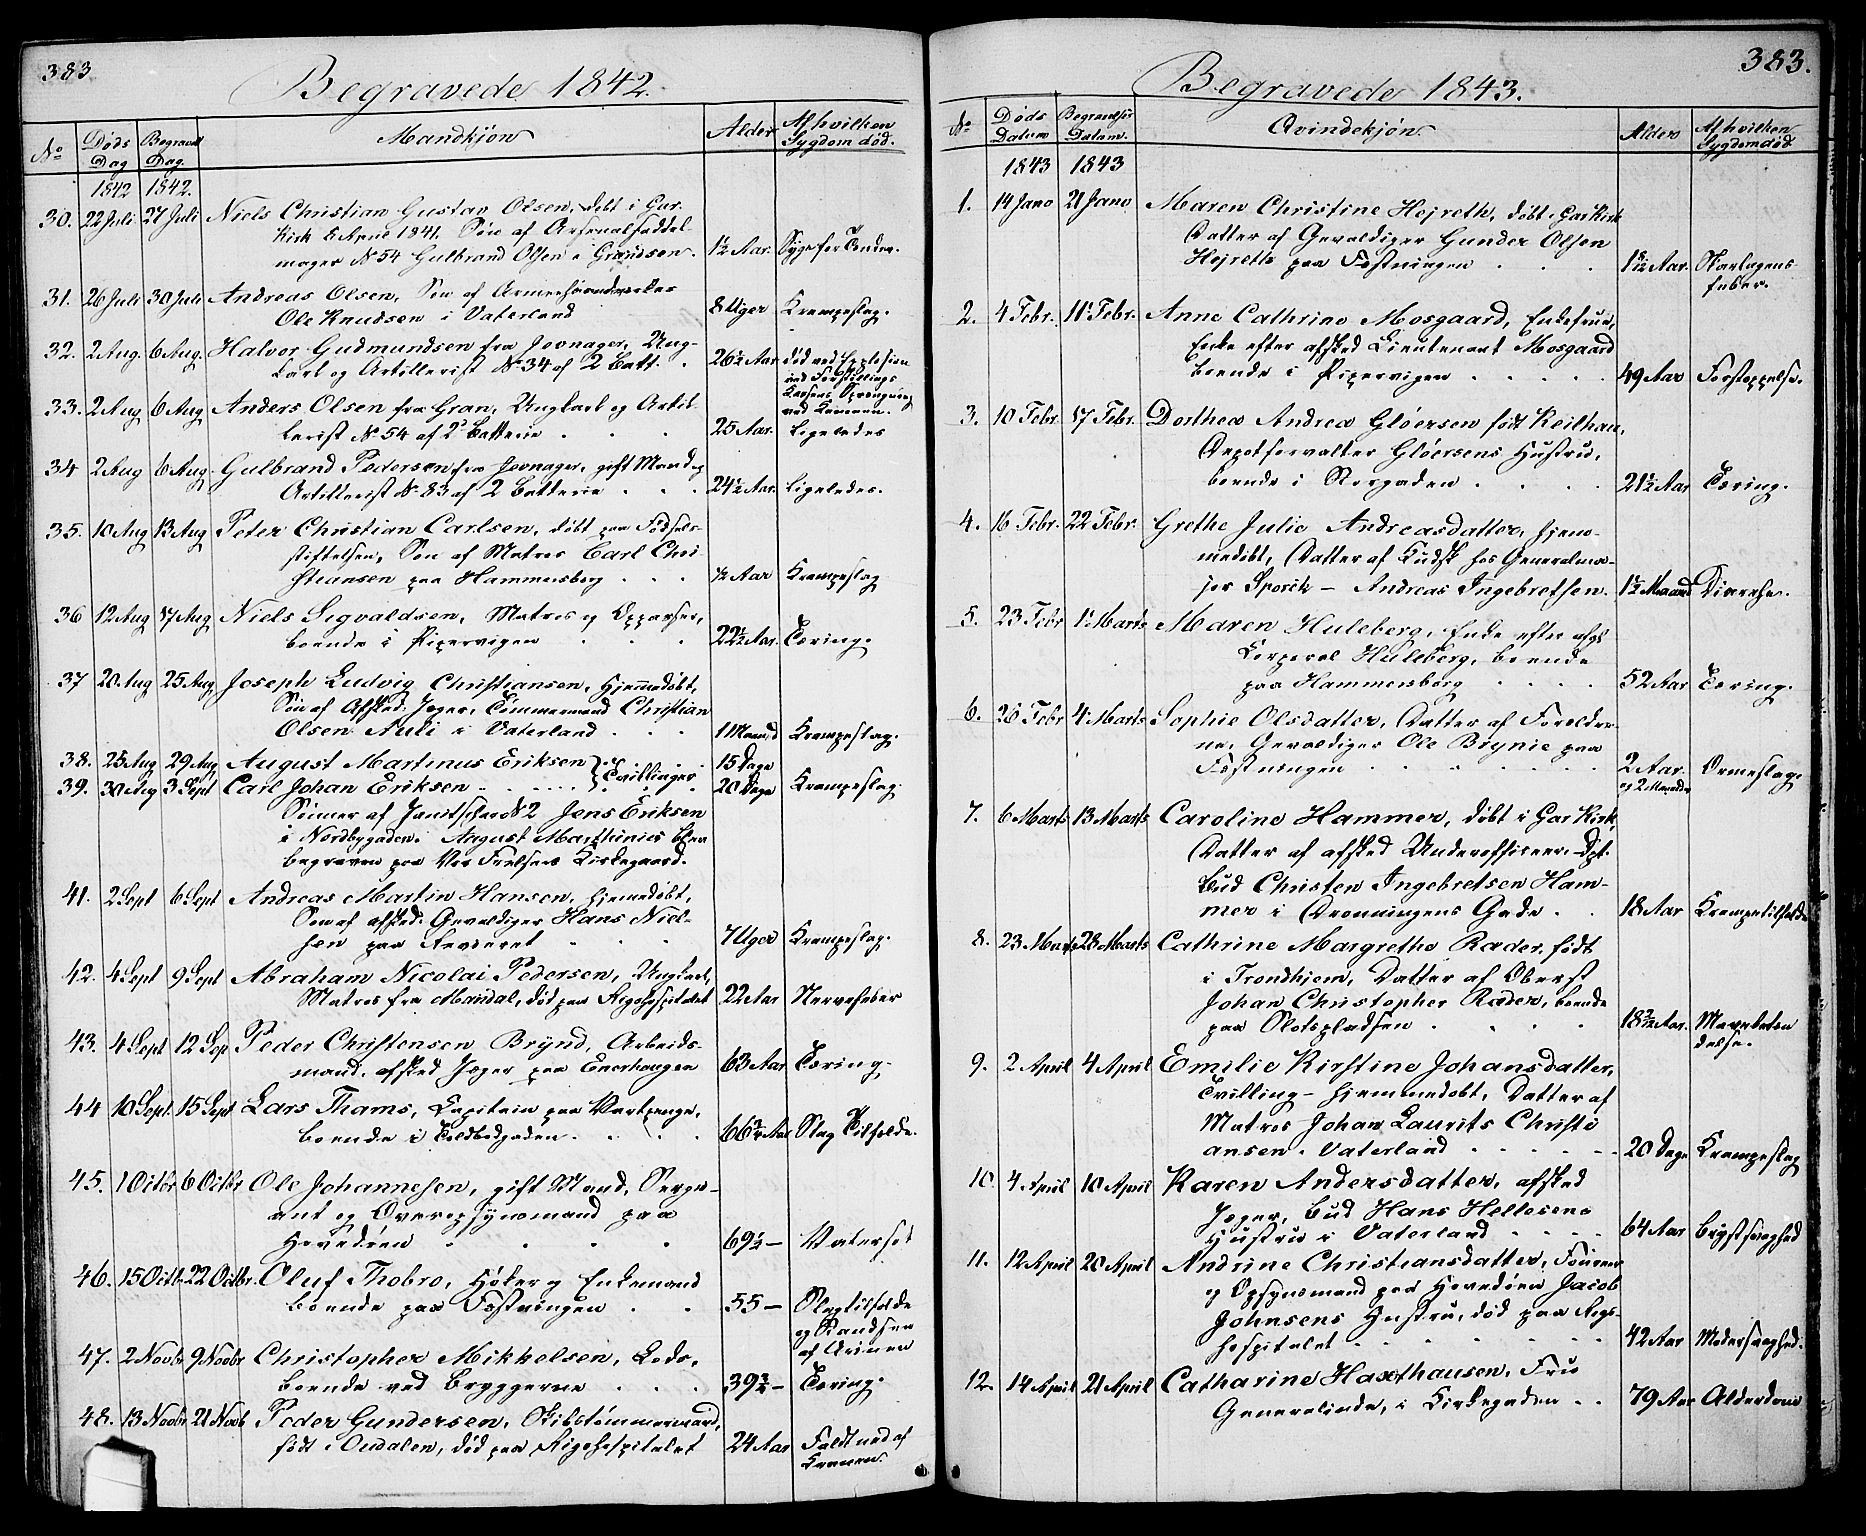 383
Begravede 1842.
No
Døds Dag
Begravel. Dag
Mandkjøn
Alder
Af hvilken Sygdom død.
1842 1842.
30. 22 Juli 27 Juli Niels Christian Gustav Olsen, døbt i Gar.
Kirk 5 April 1841. Søn af Arsenalsaddel-
mager No 54 Gulbrand Olsen i Grændsen. 1½ Aar.
31. 26 Juli 30 Juli Andreas Olsen, Søn af
Ole Knudsen i Vaterland 8 Uger Krampeslag.
32. 2 Aug. 6 Aug. Halvor Gudmundsen fra Jevnager, Ung-
karl og Artillerist No 34 af 2 Batt. 26½ Aar død ved Explosion
ved Forstillings
Kassens Sprængning
ved Kanonen.
33. 2 Aug 6 Aug Anders Olsen fra Gran, Ungkarl og Artil-
lerist No 54 af 2 Batterie 25 Aar. Ligeledes
34 2 Aug 6 Aug Gulbrand Pedersen fra Jevnager, gift Mand og
Artillerist No 83 af 2 Batterie 24½ Aar. Ligeledes.
35. 10 Aug 13 Aug Peter Christian Carlsen, døbt paa Fødsels-
stiftelsen, Søn af Matros Carl Chri-
stiansen paa Hammersborg ½ Aar Krampeslag
36 12 Aug 17 Aug Niels Sigvaldsen, Matros og Oppasser,
boende i Pipervigen 22½ Aar. Tæring.
37 20 Aug 25 Aug Joseph Ludvig Christiansen, hjemmedøbt,
Søn af Afsked. Jæger, Tømmermand Christian
Olsen Auli i Vaterland 1 Maaned Krampeslag.
38. 25 Aug 29 Aug August Martinus Eriksen } Tvillinger 15 Dage
39. 30 Aug 3 Sept Carl Johan Eriksen 20 Dage Krampeslag
Sønner af Janitschar No 2 Jens Eriksen
i Nordbygaden. August Marthinius blev
begraven paa Vor Frelsers Kirkegaard.
41. 2 Sept 6 Sept Andreas Martin Hansen, hjemedøbt,
Søn af afsked. Gevaldiger Hans Niel-
sen paa 7 Uger Krampeslag.
42. 4 Sept 9 Sept Abraham Nicolai Pedersen, Ungkarl,
Matros fra Mandal, død paa Rigshospitalet 22 Aar Nervefeber
43. 4 Sept 12 Sep Peder Christensen Brynd, Arbeids-
mand, afsked Jæger paa Enerhaugen 63 Aar Tæring.
44 10 Sept. 15 Sept Lars Thams, Capitain paa Vartpenge,
boende i Toldbodgaden. Slag Tilfælde.
45. 1 Octbr 6 Octbr Ole Johannesen, gift Mand, Serge-
ant og Overopsynsmand paa
Hovedøen 69½ — Vatersot
46. 15 Octb. 22 Octbr. Oluf Thobro, Høker og Enkemand
boende paa Fæstningen 55 — Slagtilfælde
og
47. 2 Novbr 9 Novbr Christopher Mikkelsen, Lods,
boende ved Bryggerne Tæring.
48. 13 Novbr 21 Novb Peder Gundersen, Skibstømmermand,
født i Oudalen, død paa Rigshospitalet 24 Aar Faldt ned af
Kranen.
383.
Begravede 1843.
No
Døds Datum
Begravelses Datum.
Qvindekjøn.
Alder
Af hvilken Sygdom død.
1843 1843
1. 14 Janv 21 Janv Maren Christine Hejreth, døbt i Gar Kirk
Datter af Gevaldiger Gunder Olsen
Hejreth paa Fæstningen Skarlagens-
feber.
2. 4 Febr. 11 Febr. Anne Cathrine Mosgaard, Enkefrue,
Enke efter afsked Lieutenant Mosgaard
boende i Pipervigen 49 Aar Forstoppelse.
3. 10 Febr 17 Febr. Dorthea Andrea Gløersen født Keilhau,
Depotforvalter Gløersens Hustru,
boende i Storgaden 21½ Aar Tæring.
4. 16 Febr. 22 Febr. Grethe Julie Andreasdatter, hjem-
medøbt, Datter af Kudsk hos Generalma-
jor Sporck — Andreas Ingebretsen. 1½ Maaned Diarrhe.
5. 23 Febr 1 Marts Maren Huleberg, Enke efter afg.
Korporal Huleberg, boende
paa Hammersborg 52 Aar Tæring.
6. 26 Febr 4 Marts Sophie Olsdatter, Datter af Forældre-
ne, Gevaldiger Ole Brynie paa
Fæstningen 2 Aar. og 2 Maaneder Ormeslag
7. 6 Marts 13 Marts Caroline Hammer, døbt i Gar Kirk,
Datter af afsked Underofficeer, Dpt.
Bud Christen Ingebretsen Ham-
mer i Dronningens Gade 18 Aar Krampetilfælde
8. 23 Marts 28 Marts Cathrine Margrethe Rader, født
i Trondhiem, Datter af Oberst
Johan Christopher Rader, boende
paa Slotspladsen
9. 2 April 4 April Emilie Kirstine Johansdatter,
Tvilling — hjemmedøbt, Datter af
Matros Johan Laurits Christi
ansen. Vaterland 20 Dage Krampeslag
10. 4 April 10 April Karen Andersdatter, afsked
Jæger, Bud Hans Hellesens
Hustru i Vaterland 64 Aar Brystsvaghed
11. 12 April 20 April Andrine Christiansdatter, Fourer
og Opsynsmand paa Hovedøen Jacob
Johnsens Hustru, død paa Rigs-
hospitalet 42 Aar Modersvaghed.
12. 14 April 21 April Catharine Haxthausen, Frue
Generalinde, i Kirkegaden 79 Aar Alderdom